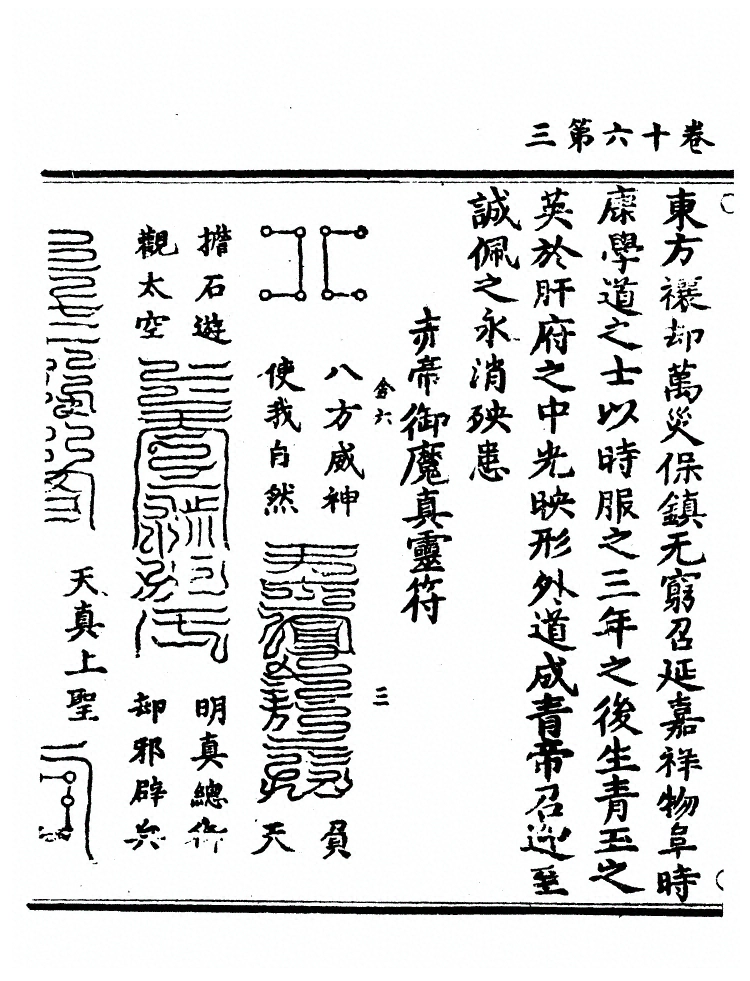 卷十六第三
東方禳却萬災保鎮无窮召延嘉祥物阜時
康學道之士以時服之三年之後生青玉之
英於肝府之中光映形外道成青帝召迎至
誠佩之永消殃患
赤帝御魔真靈符
八方威神
使我自然
三
員
天
擔石遊
觀太空
明真總
却邪辟兵
天真上聖